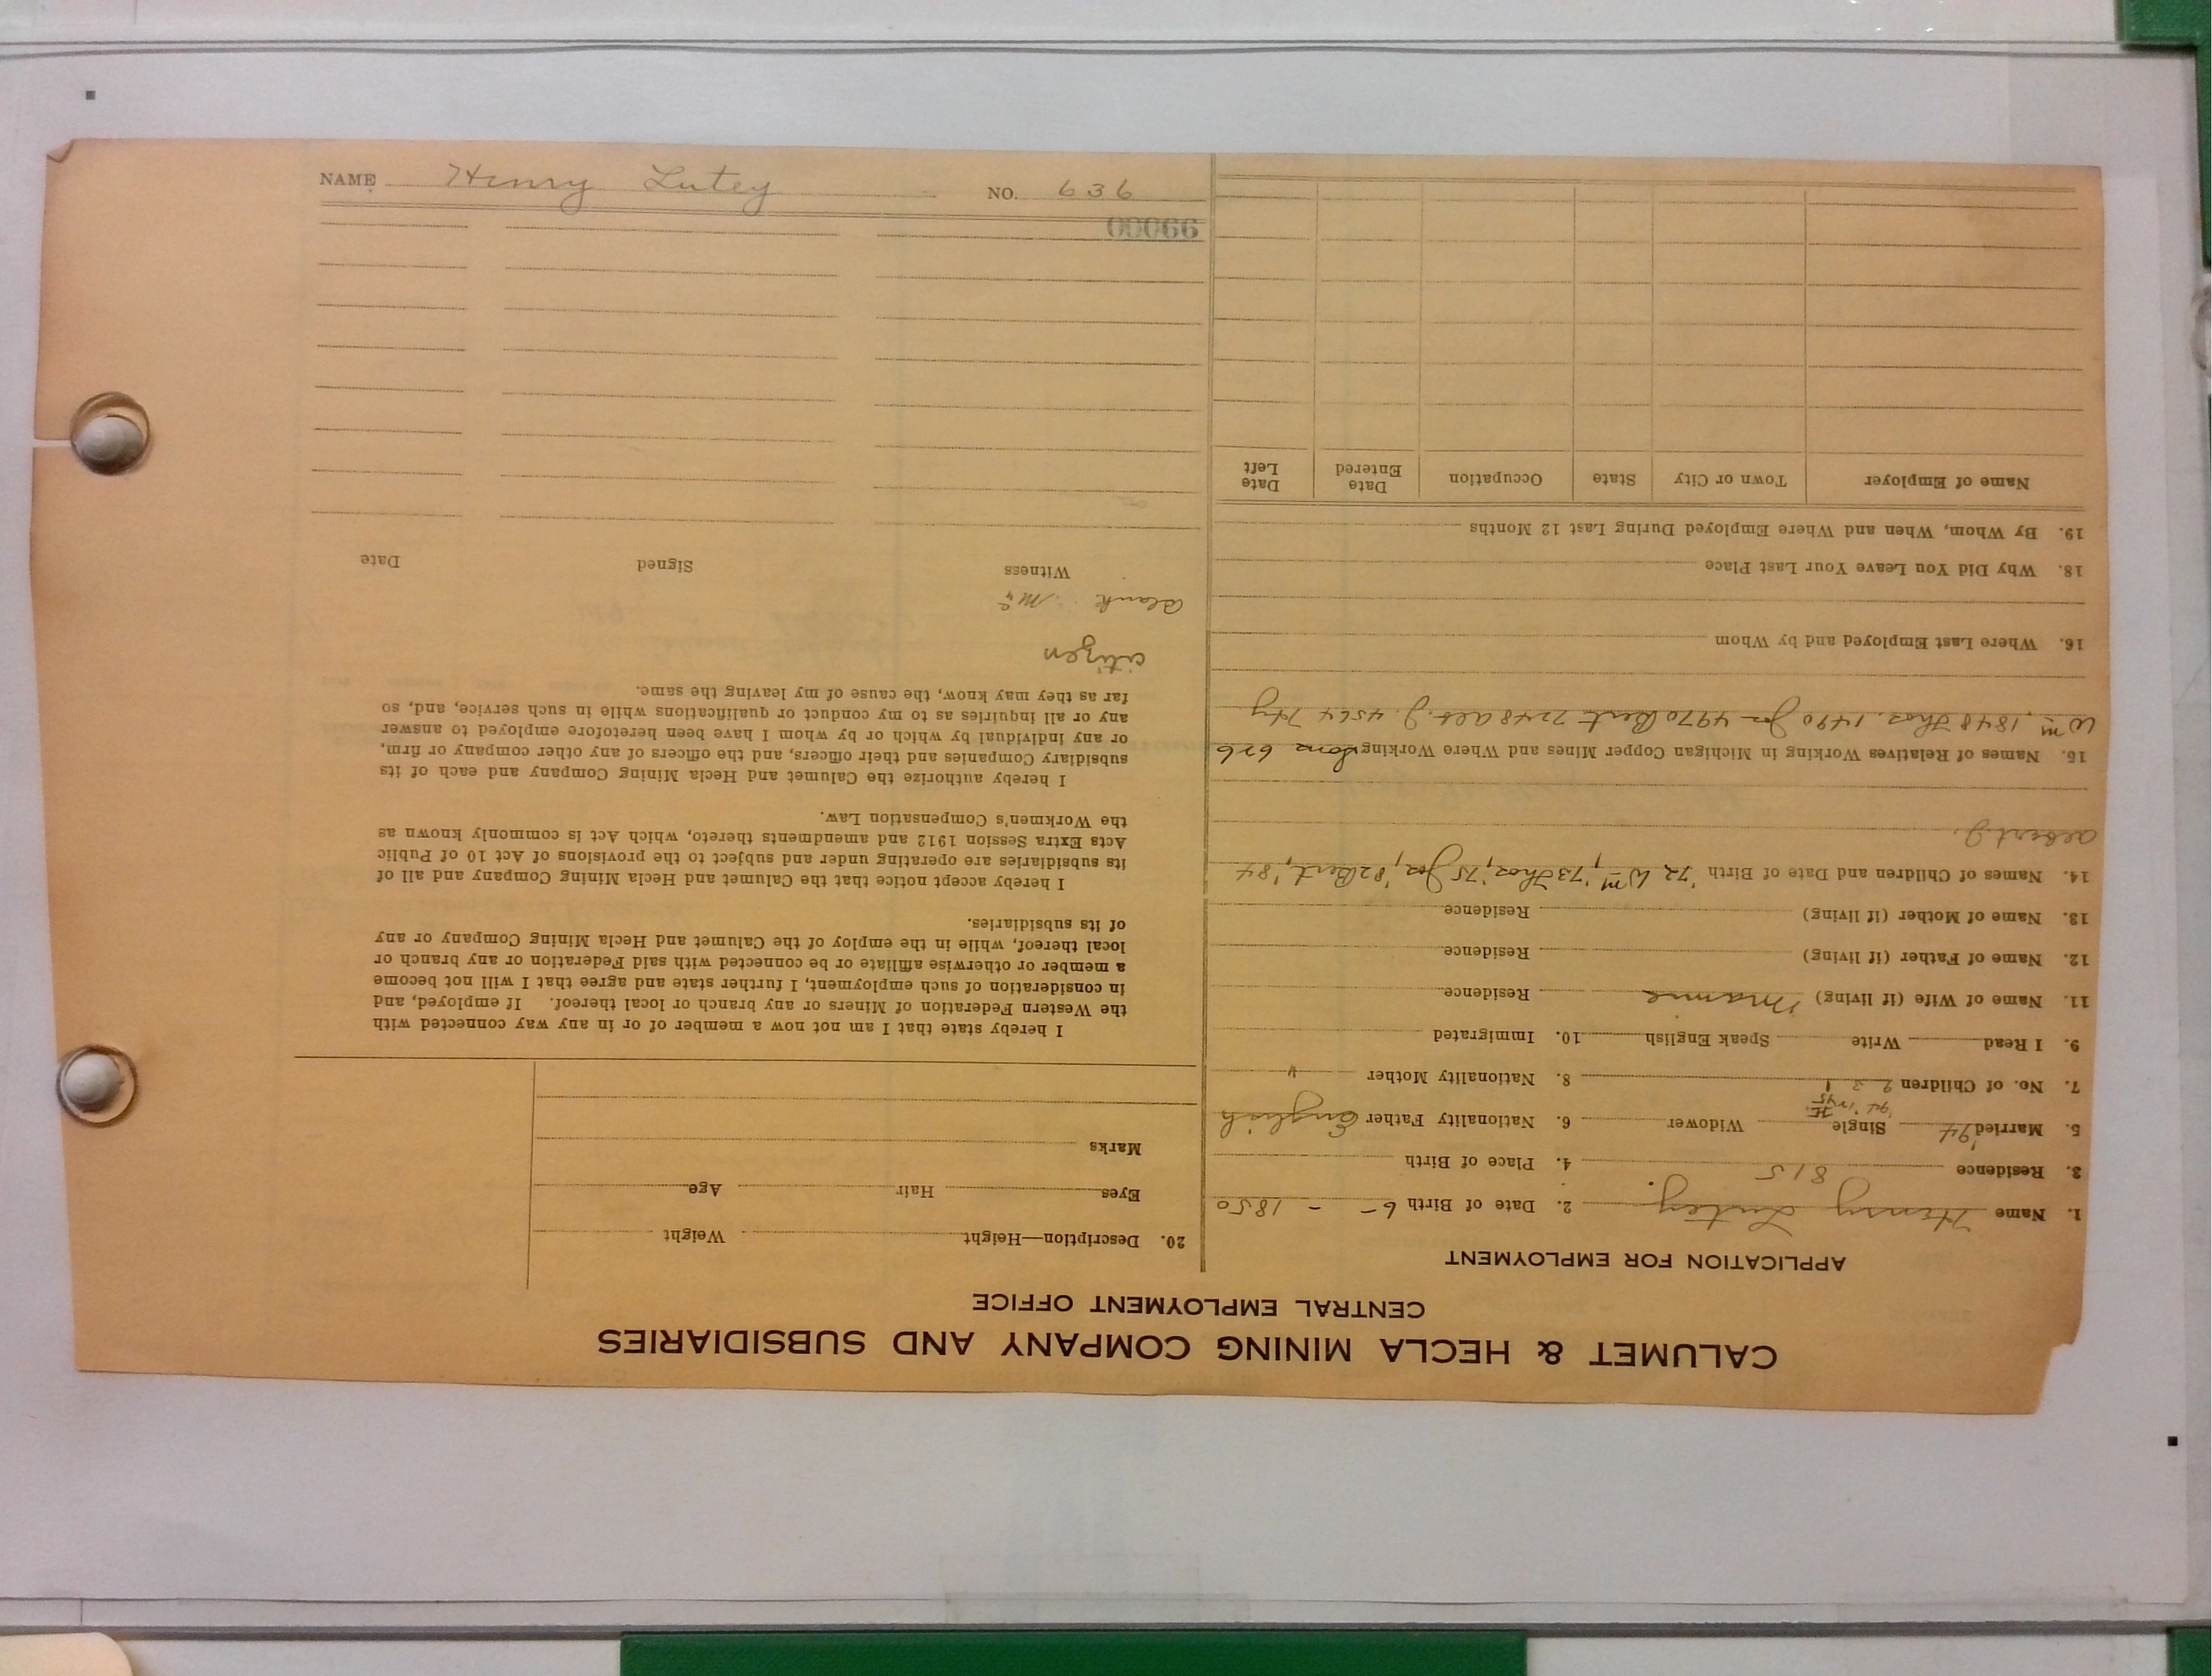 CALUMET & HECLA MINING COMPANY AND SUBSIDIARIES
CENTRAL EMPLOYMENT OFFICE
APPLICATION FOR EMPLOYMENT
1. Name Henry Lutey 2. Date of Birth 6 - - 1850
3. Residence 815 4. Place of Birth
5. Married '94 Single Widower 6. Nationality Father English
7. No. of Children 2 3 1 8. Nationality Mother "
9. I Read Write Speak English 10. Immigrated
11. Name of Wife (if living) Mamie Residence
12. Name of Father (if living) Residence
13. Name of Mother (if living) Residence
14. Names of Children and Date of Birth '72 Wm, '73 Thos, '75 Jos, '82 Bert, '84
Albert J.
15. Names of Relatives Working in Michigan Copper Mines and Where Working Sons 626
Wm, 1848 Thos. 1490 Jos 4970 Bert 7248 Alb. J. 4564 Hy.
16. Where Last Employed and by Whom
18. Why Did You Leave Your Last Place
19. By Whom, When and Where Employed During Last 12 Months
Name of Employer Town or City State Occupation Date Entered Date Left
20. Description—Height Weight
Eyes Hair Age
Marks
I hereby state that I am not now a member of or in any way connected with
the Western Federation of Miners or any branch or local thereof. If employed, and
in consideration of such employment, I further state and agree that I will not become
a member or otherwise affiliate or be connected with said Federation or any branch or
local thereof, while in the employ of the Calumet and Hecla Mining Company or any
of its subsidiaries.
I hereby accept notice that the Calumet and Hecla Mining Company and all of
its subsidiaries are operating under and subject to the provisions of Act 10 of Public
Acts Extra Session 1912 and amendments thereto, which Act is commonly known as
the Workmen's Compensation Law.
I hereby authorize the Calumet and Hecla Mining Company and each of its
subsidiary Companies and their officers, and the officers of any other company or firm,
or any individual by which or by whom I have been heretofore employed to answer
any or all inquiries as to my conduct or qualifications while in such service, and, so
far as they may know, the cause of my leaving the same.
citizen
Blank
Witness Signed Date
00066
NAME Henry Lutey NO. 636